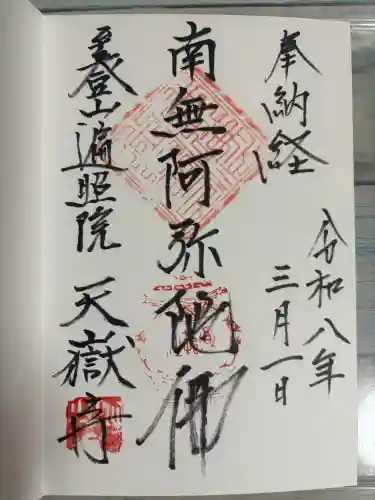 奉納経
令和八年
三月一日
南無阿弥陀仏
養登山遍照院
天嶽寺